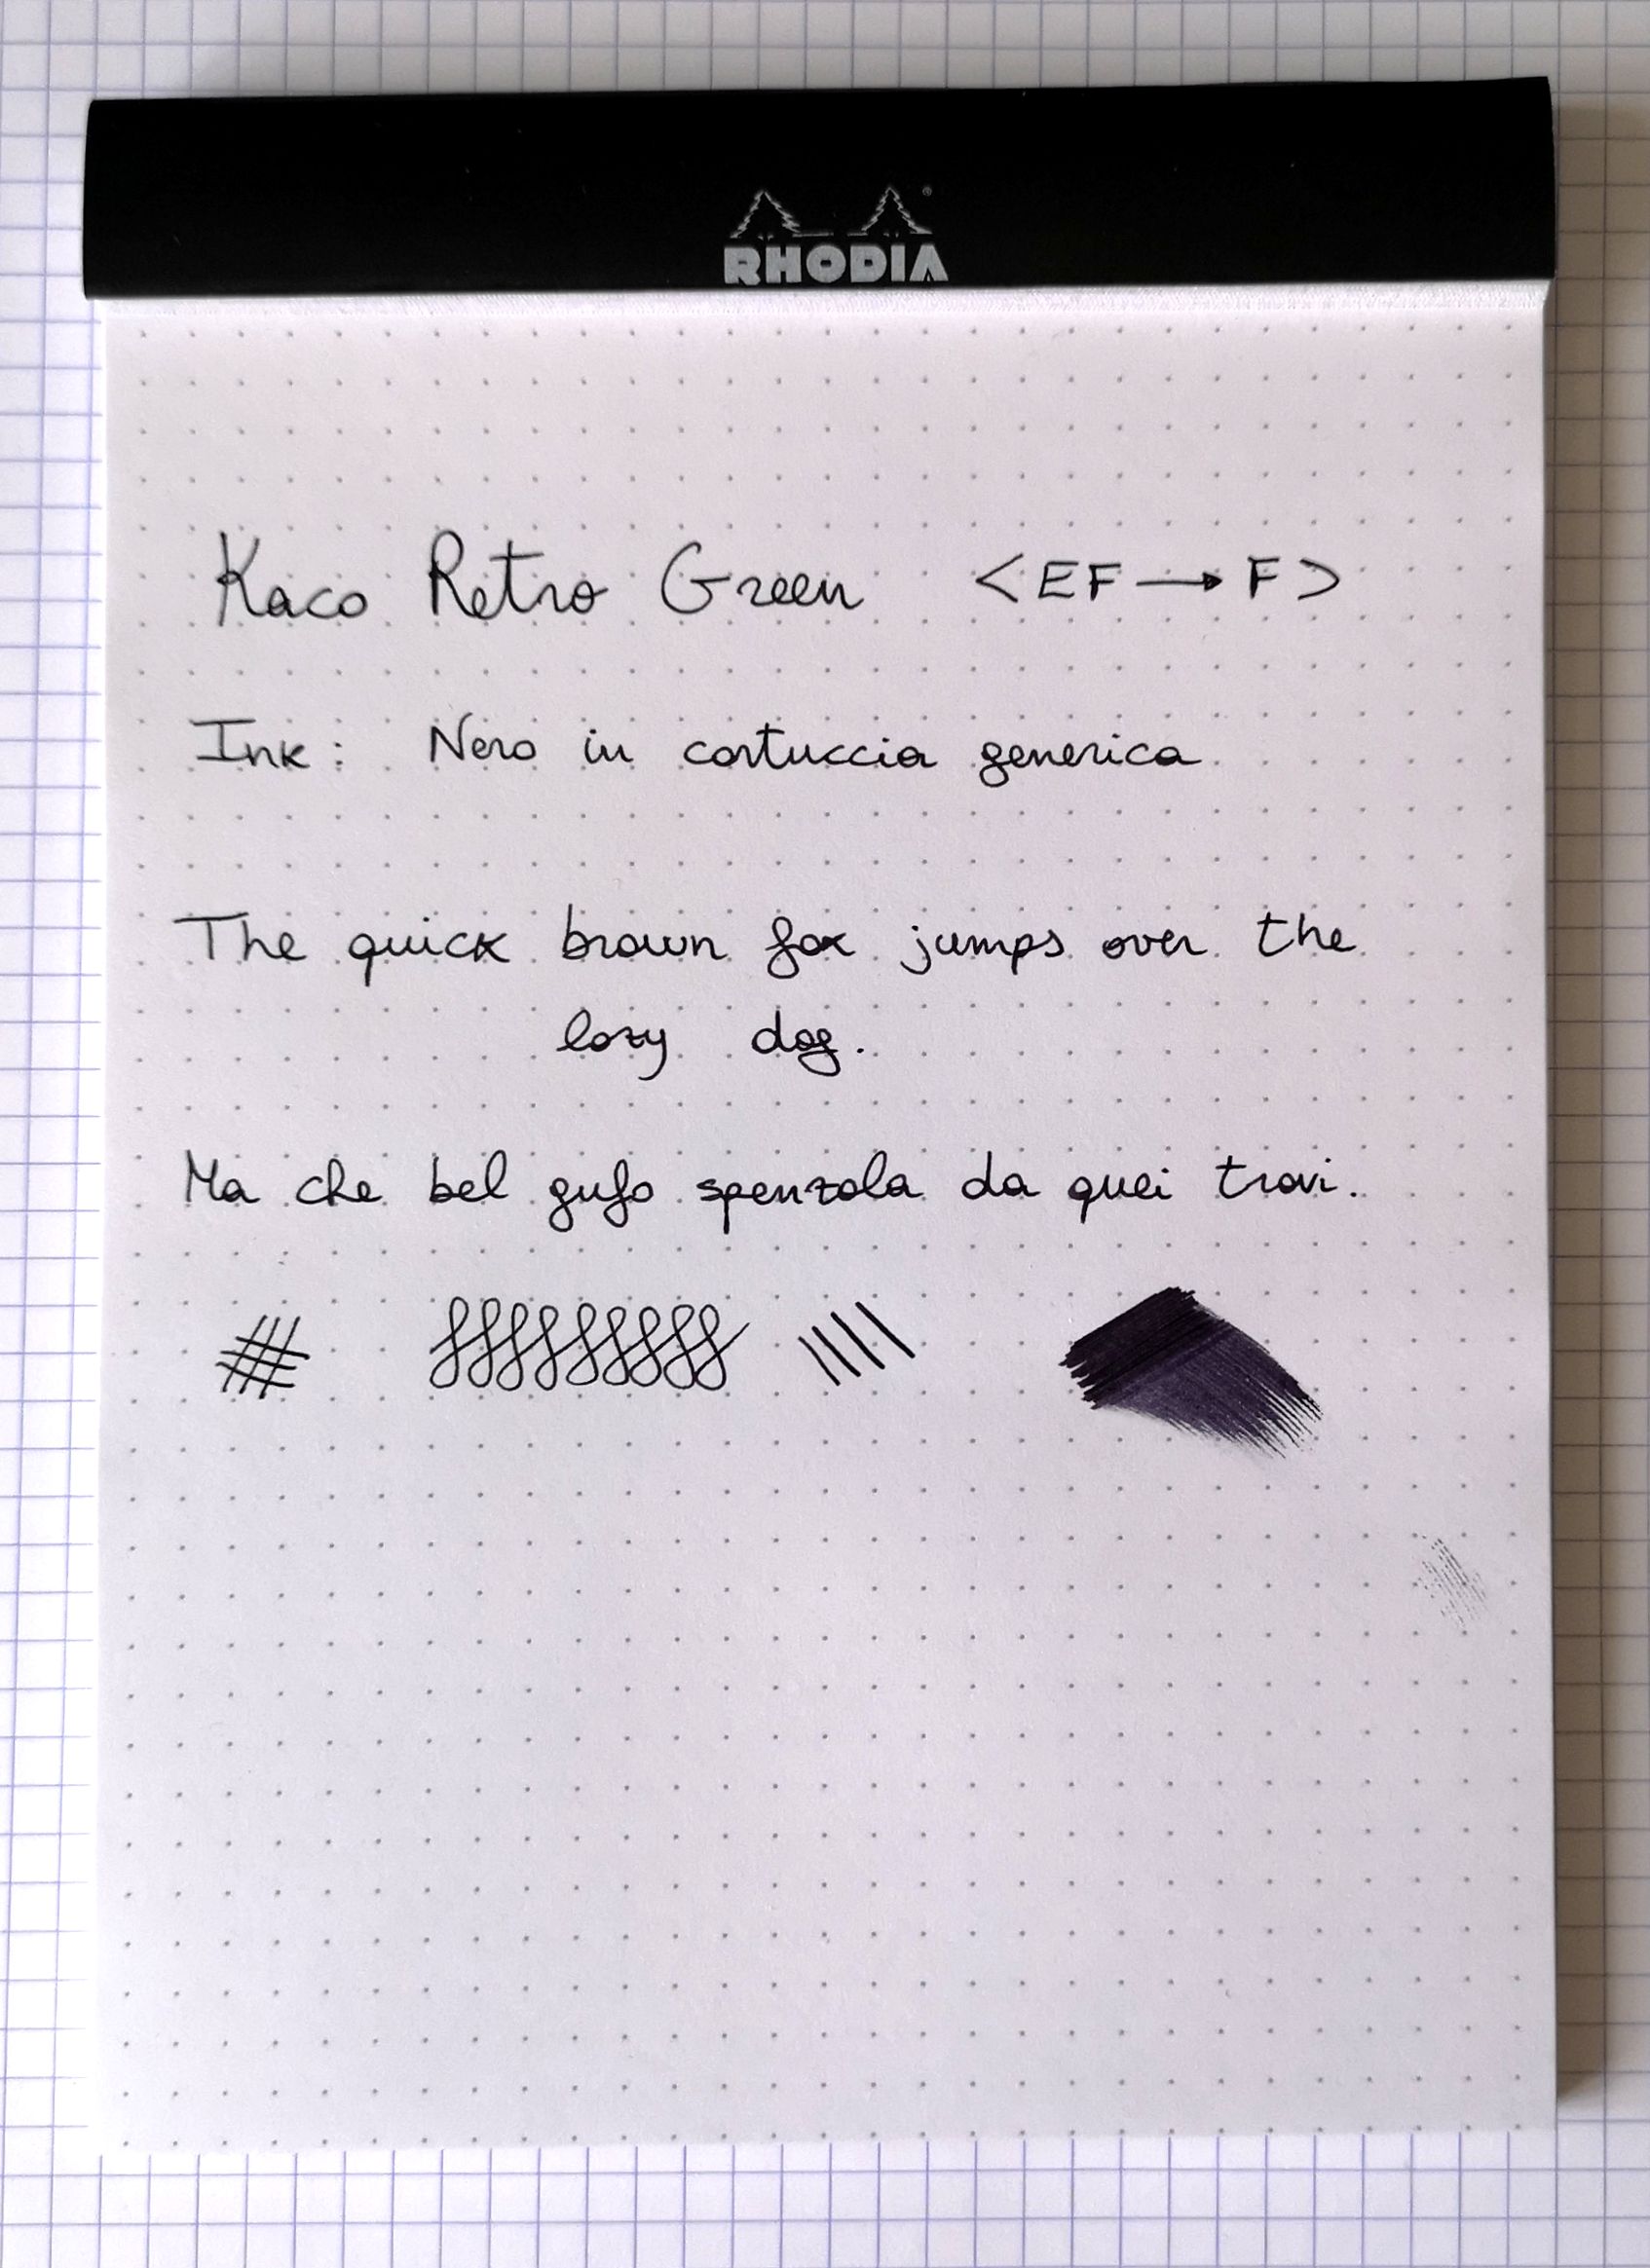 RHODIA
Kaco Retro Green <EF → F>
Ink: Nero in cartuccia generica
The quick brown fox jumps over the
lazy dog.
Ma che bel gufo spenzola da quei travi.